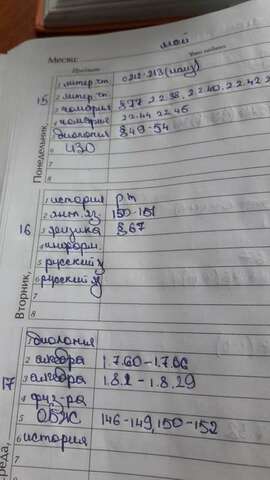 Месяц: май
Предмет Что задано
Понедельник, 15
1 литер. чт. с 212-213 (наиз)
2 литер. чт.
3 геометрия §77 22.38, 22.40, 22.42
4 геометрия 22.44 22.46
биология §49-54
6 ИЗО
7
8
Вторник, 16
1 история р.т
2 англ. яз. 150-151
3 физика §67
4 информ.
5 русский яз
6 русский яз
7
8
Среда, 17
биология
2 алгебра 1.7.60-1.7.66
3 алгебра 1.8.2-1.8.29
4 физ-ра
5 ОБЖ 146-149, 150-152
6 история
7
8